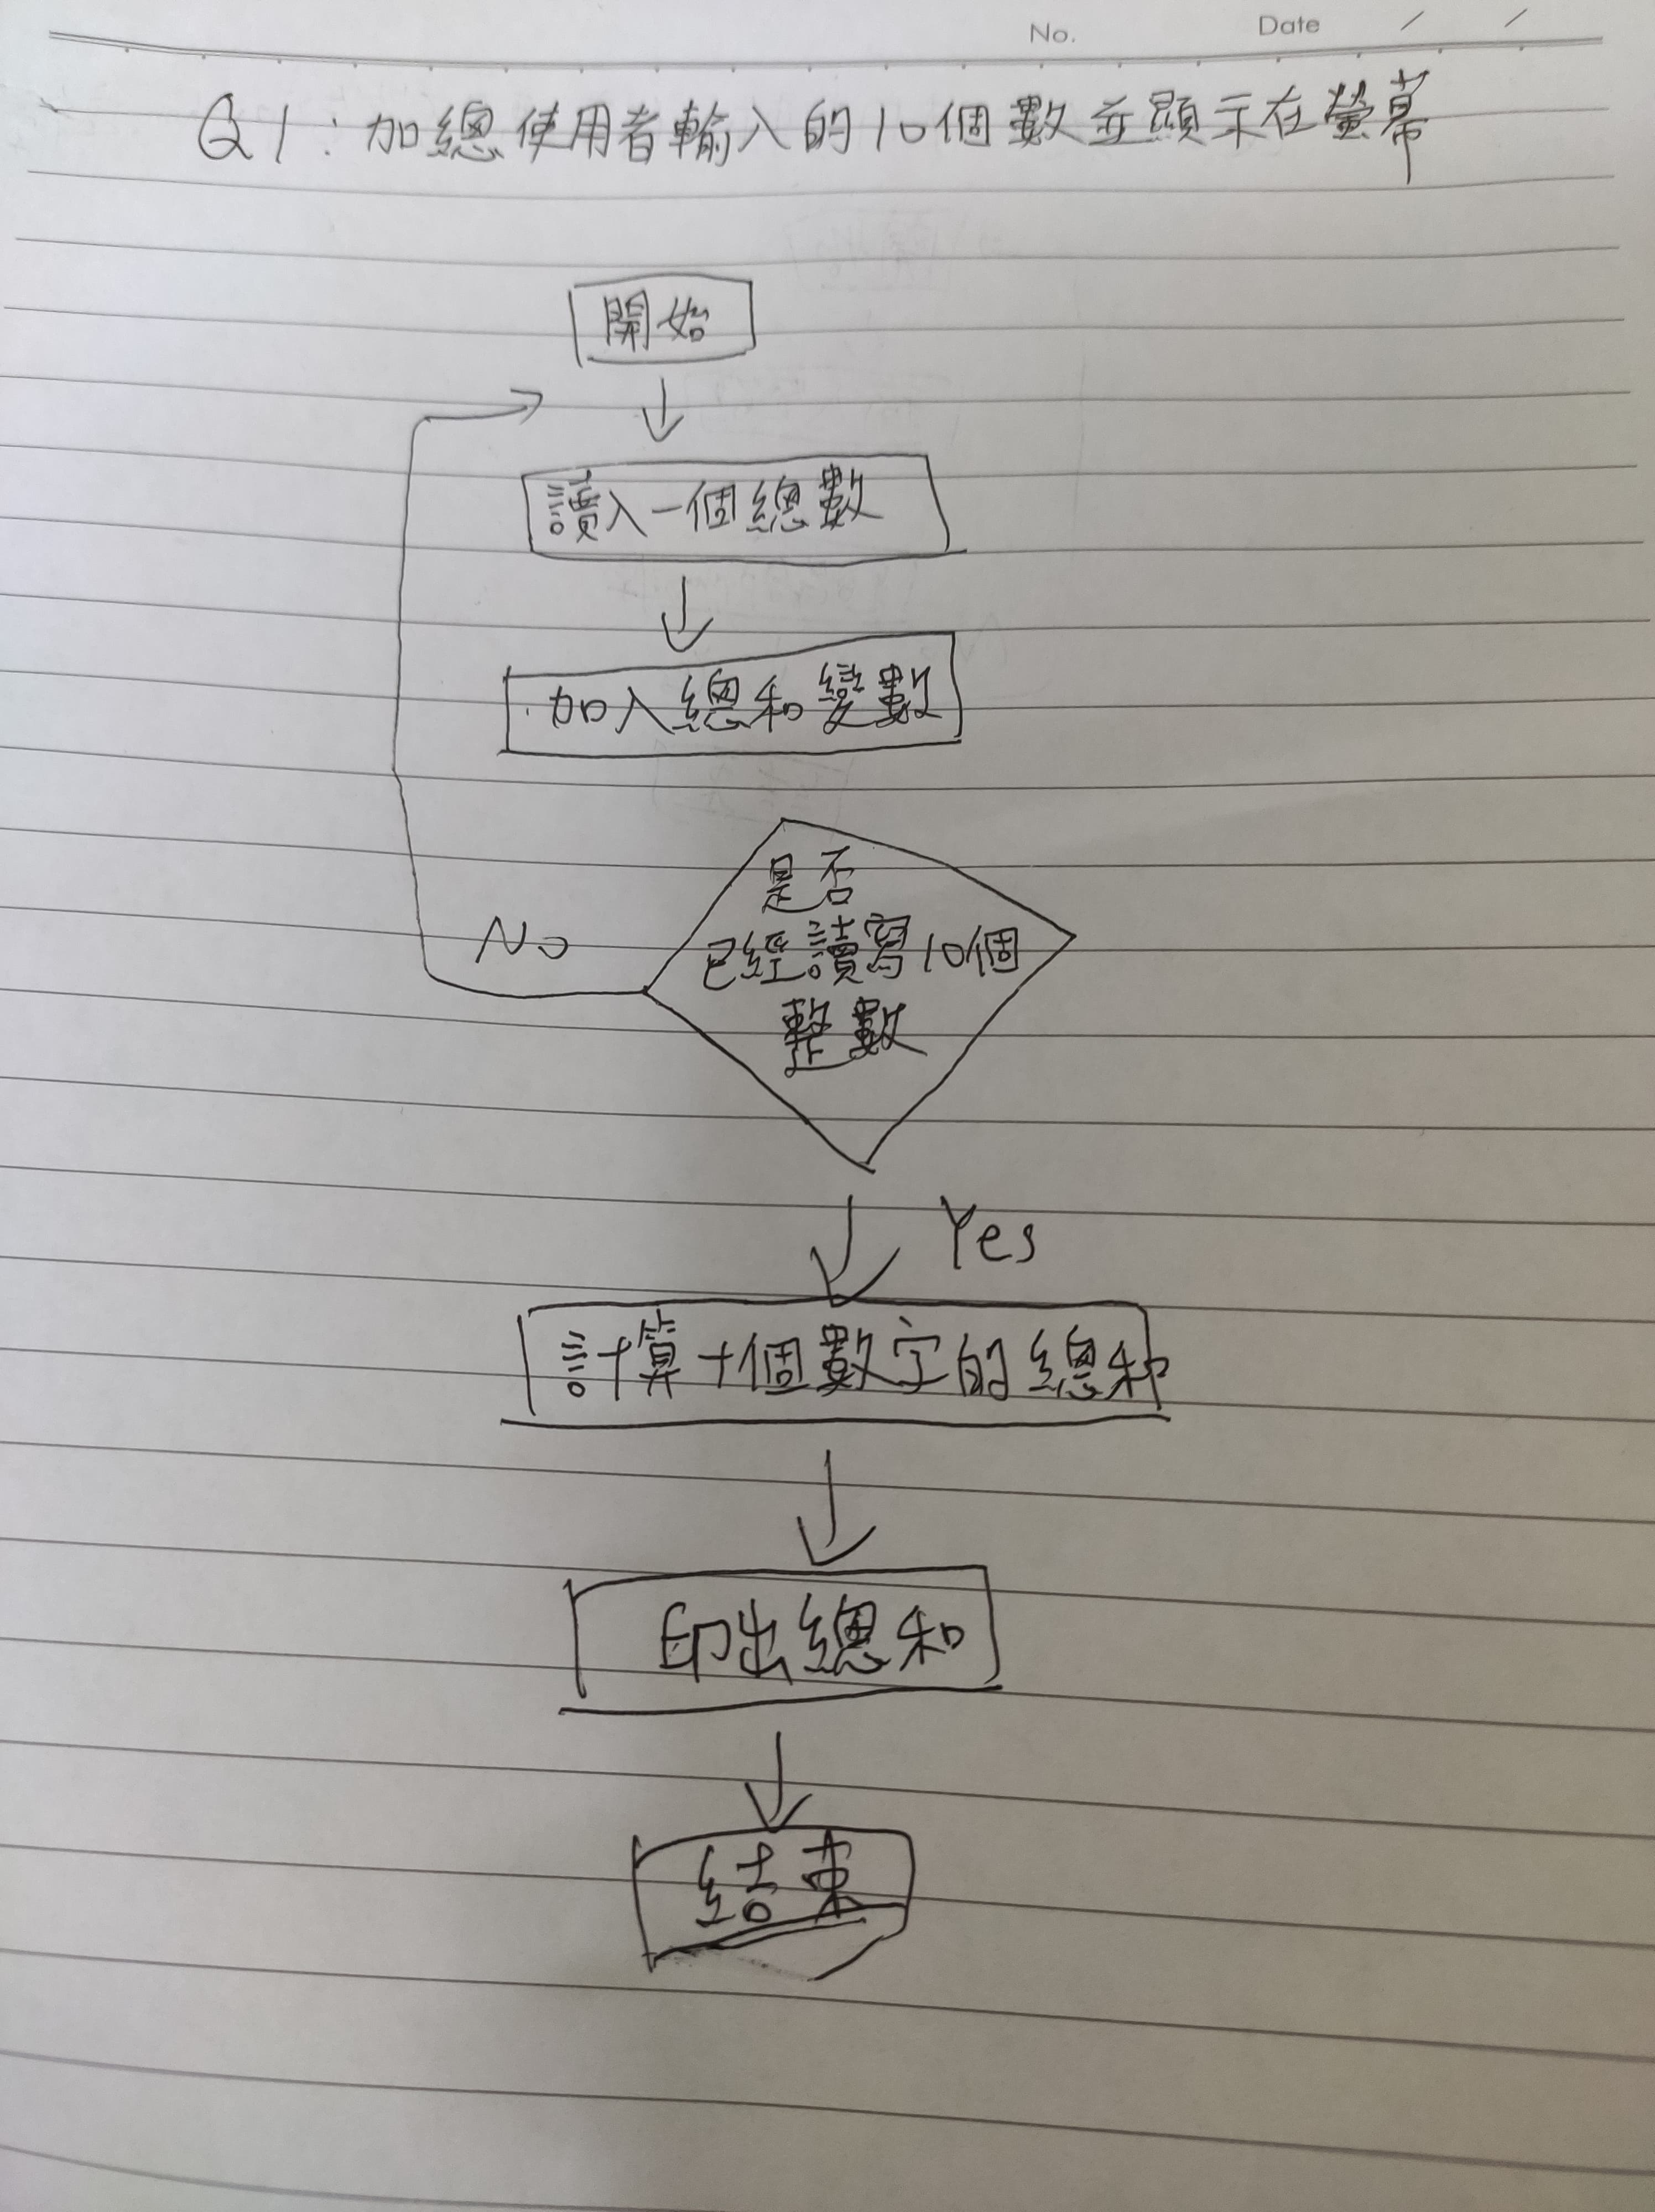 No. Date / /
Q1：加總使用者輸入的10個數並顯示在螢幕
開始
讀入一個總數
加入總和變數
是否
No 已經讀寫10個
整數
Yes
計算十個數字的總和
印出總和
結束